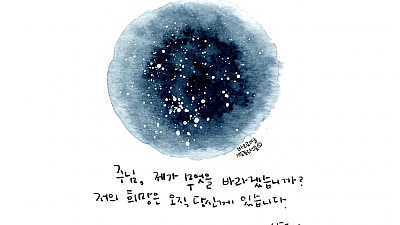 주님, 제가 무엇을 바라겠습니까?
저의 희망은 오직 당신께 있습니다.